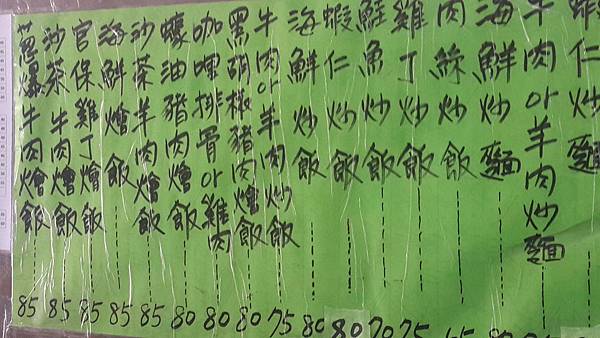 蝦仁炒麵
牛肉or羊肉炒麵
海鮮炒麵
肉絲炒飯
雞丁炒飯 75
鮭魚炒飯 70
蝦仁炒飯 80
海鮮炒飯 80
牛肉or羊肉炒飯 75
黑胡椒豬肉燴飯 80
咖哩排骨or雞肉 80
蠔油豬肉燴飯 80
沙茶羊肉燴飯 85
海鮮燴飯 85
官保雞丁燴飯 85
沙茶牛肉燴飯 85
蔥爆牛肉燴飯 85